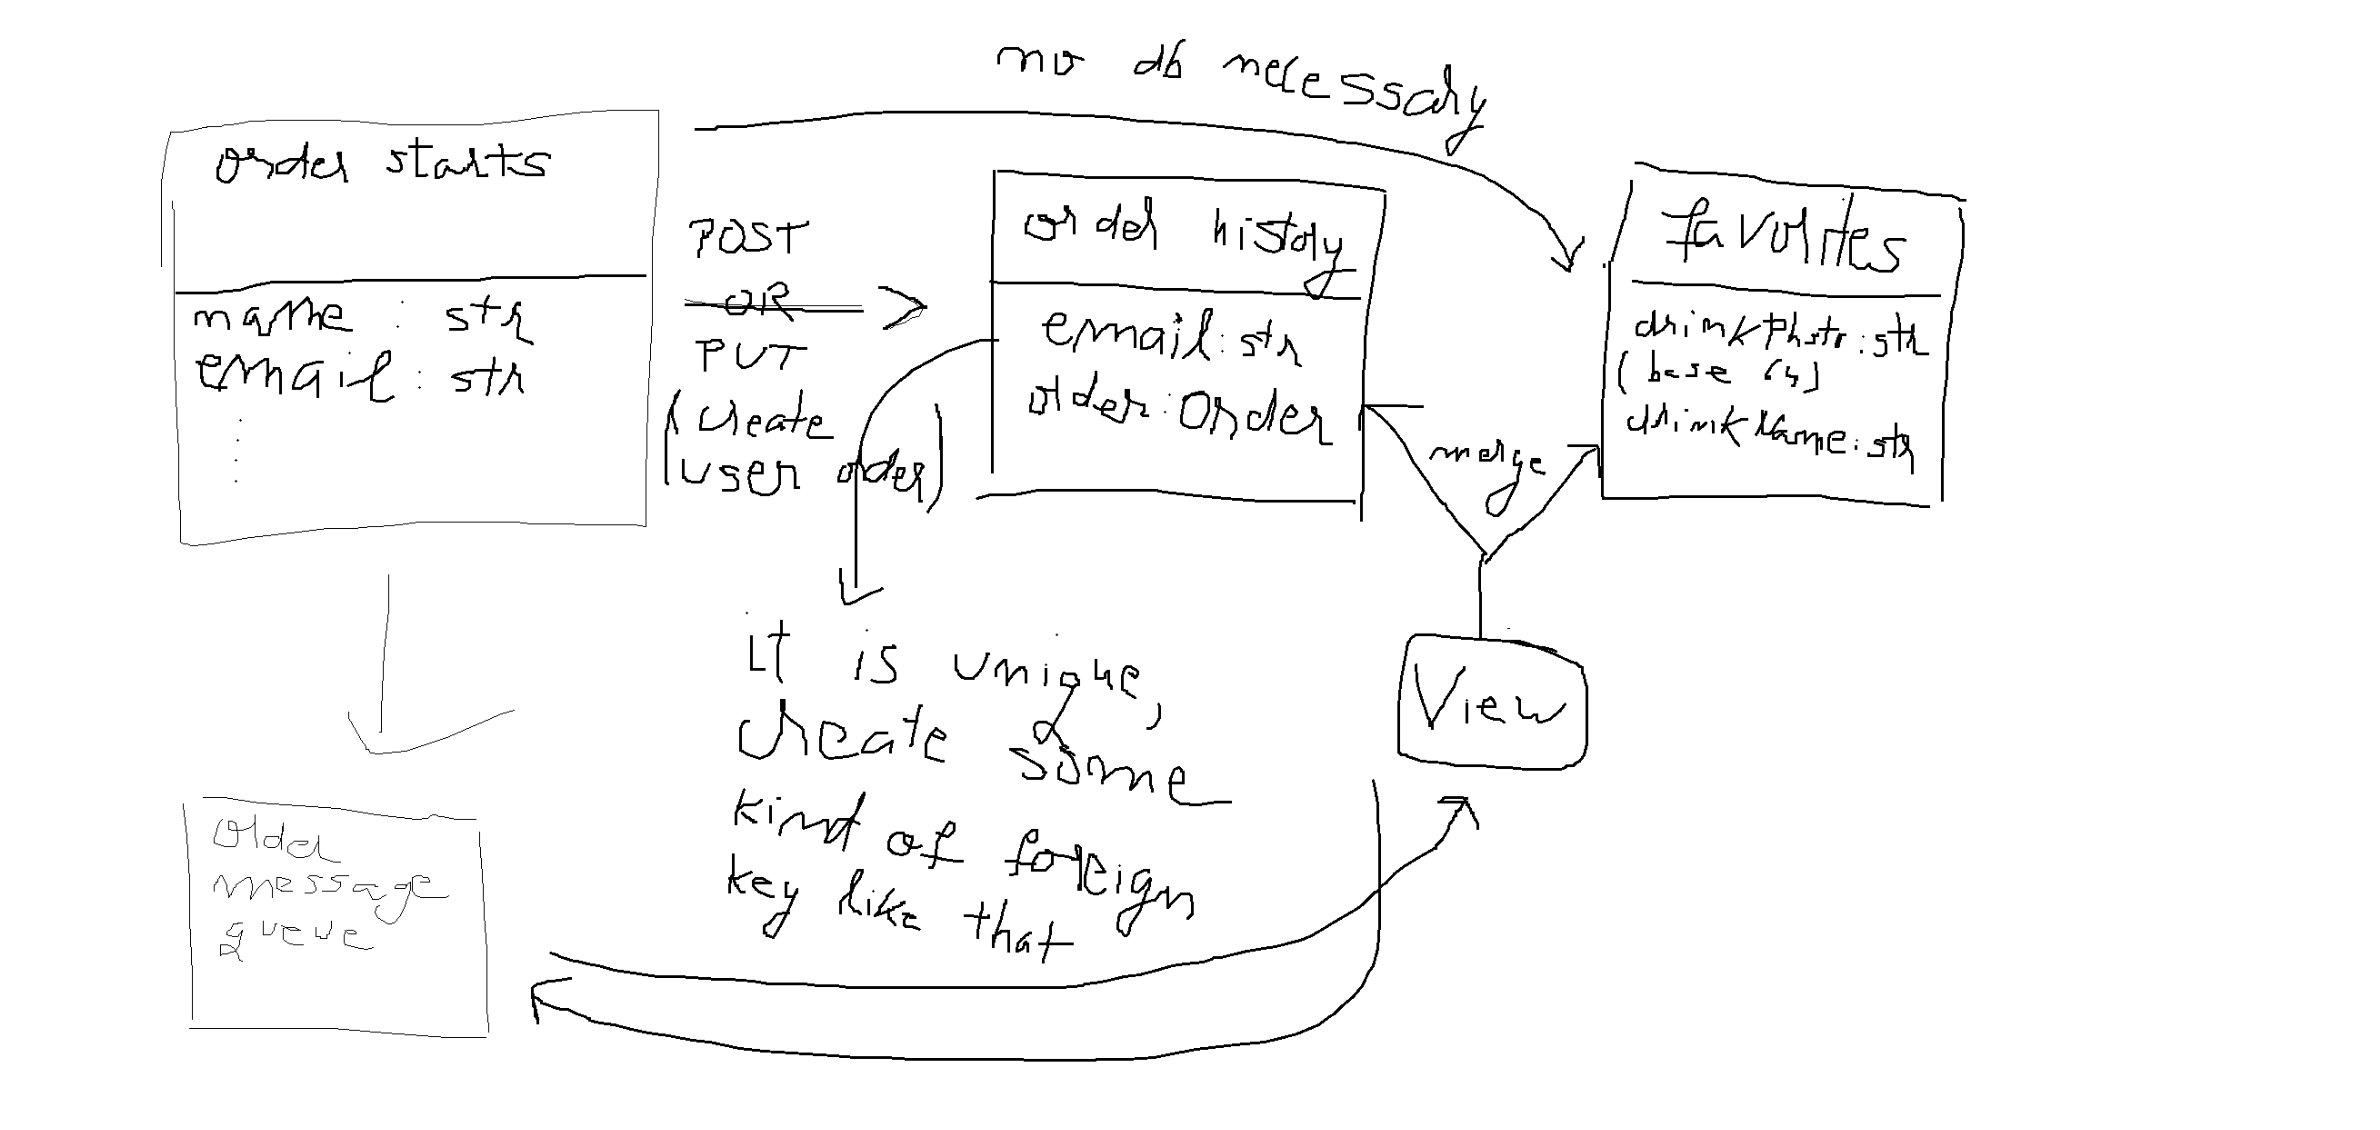 no db necessary
order starts
name : str
email : str
POST
OR
PUT
(create
user order)
order history
email: str
order: Order
favorites
drinkPhoto: str
(base 64)
drinkName: str
merge
View
it is unique,
create some
kind of foreign
key like that
order
message
queue